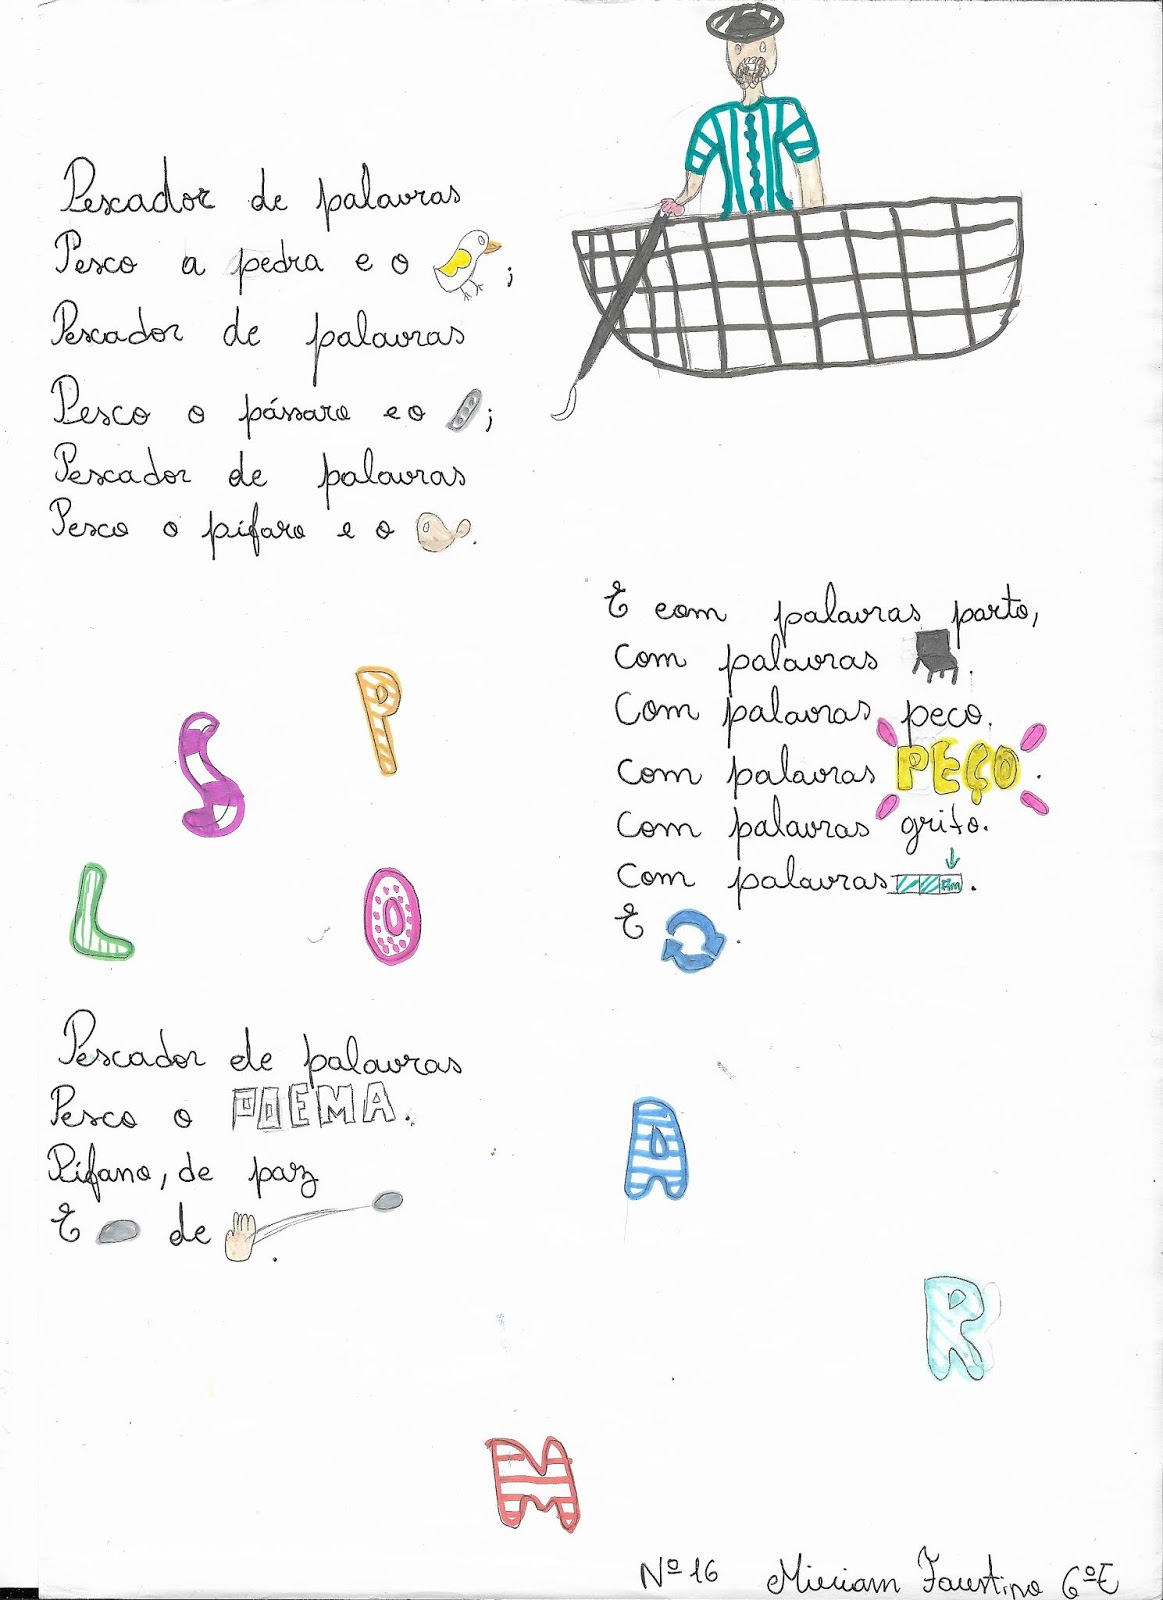 Pescador de palavras
Pesco a pedra e o ;
Pescador de palavras
Pesco o pássaro e o ;
Pescador de palavras
Pesco o pífaro e o .
E com palavras parto,
com palavras .
Com palavras peco.
com palavras PEÇO.
com palavras grito.
com palavras Fim.
E .
P
S
L
O
Pescador de palavras
Pesco o POEMA.
Pífano, de paz
E de .
A
R
M
Nº 16 Miriam Faustino 6ºE